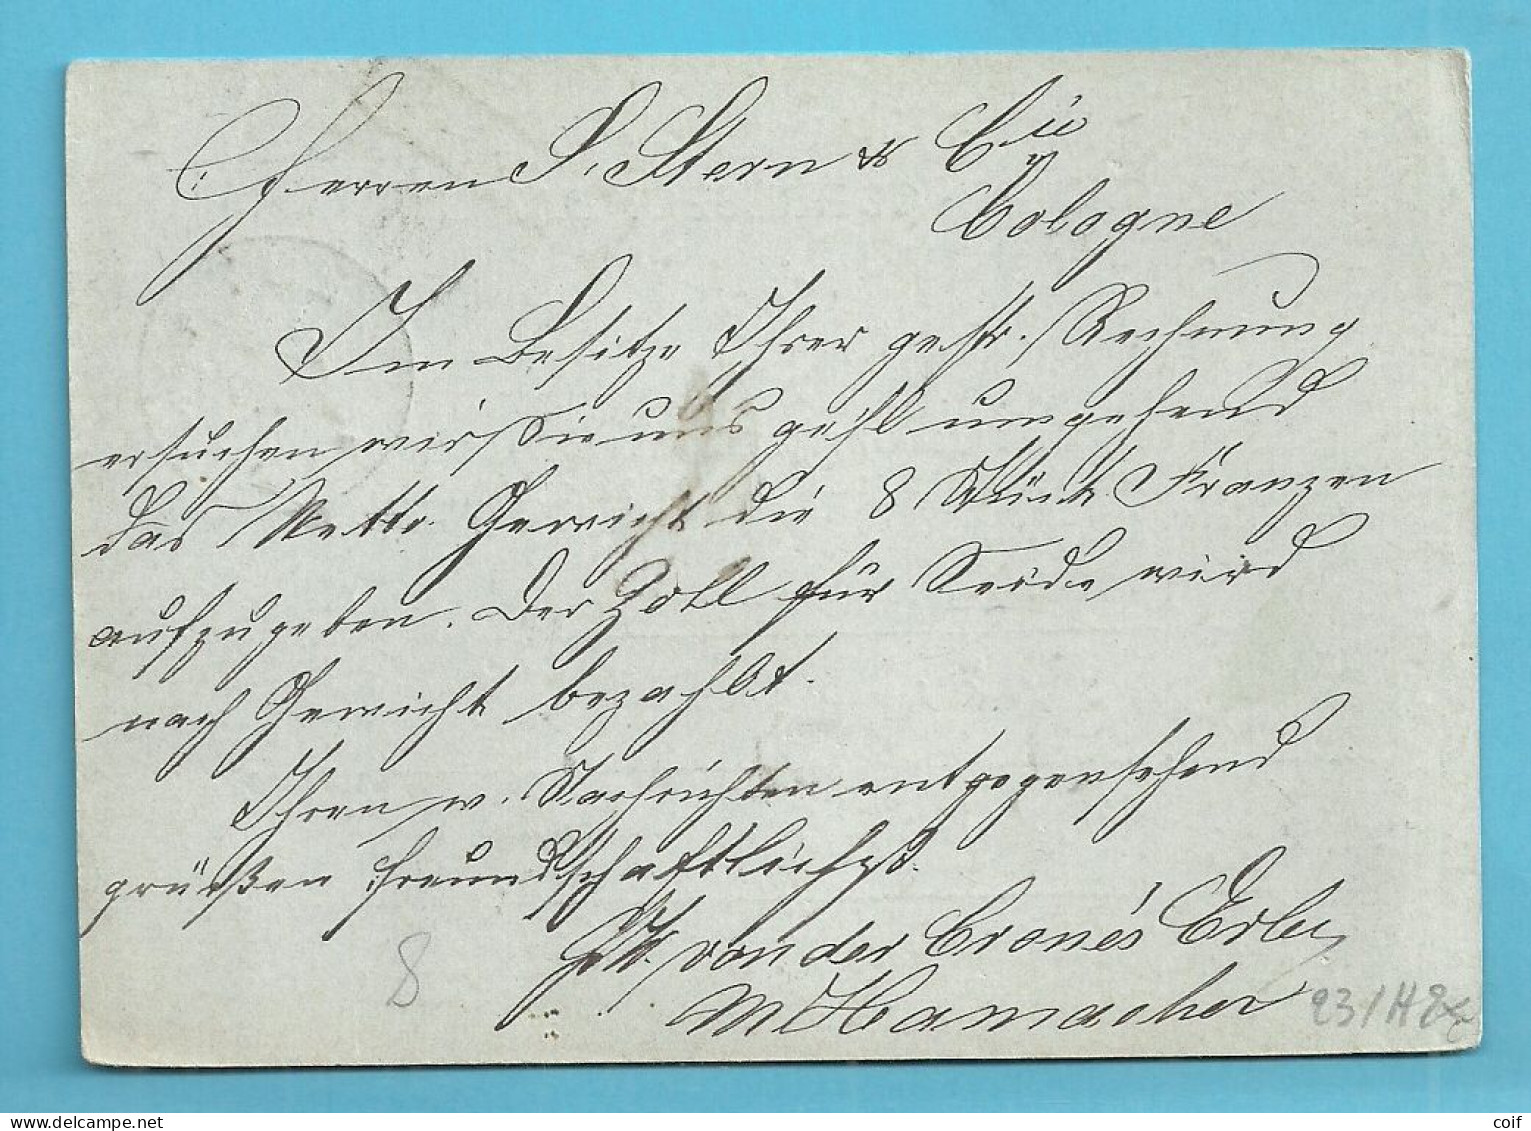 Herren S. Stern & Cie
Cologne
Im Besitze Ihrer gestr. Rechnung
ersuchen wir Sie uns gefl umgehend
das Netto Gewicht die 8 Stück Franzen
aufzugeben. Der Zoll für Seide wird
nach Gewicht bezahlt.
Ihren w. Nachrichten entgegensehend
grüßen freundschaftlichst
von der Crone's
M Hamacher
8
www.delcampe.net
coif